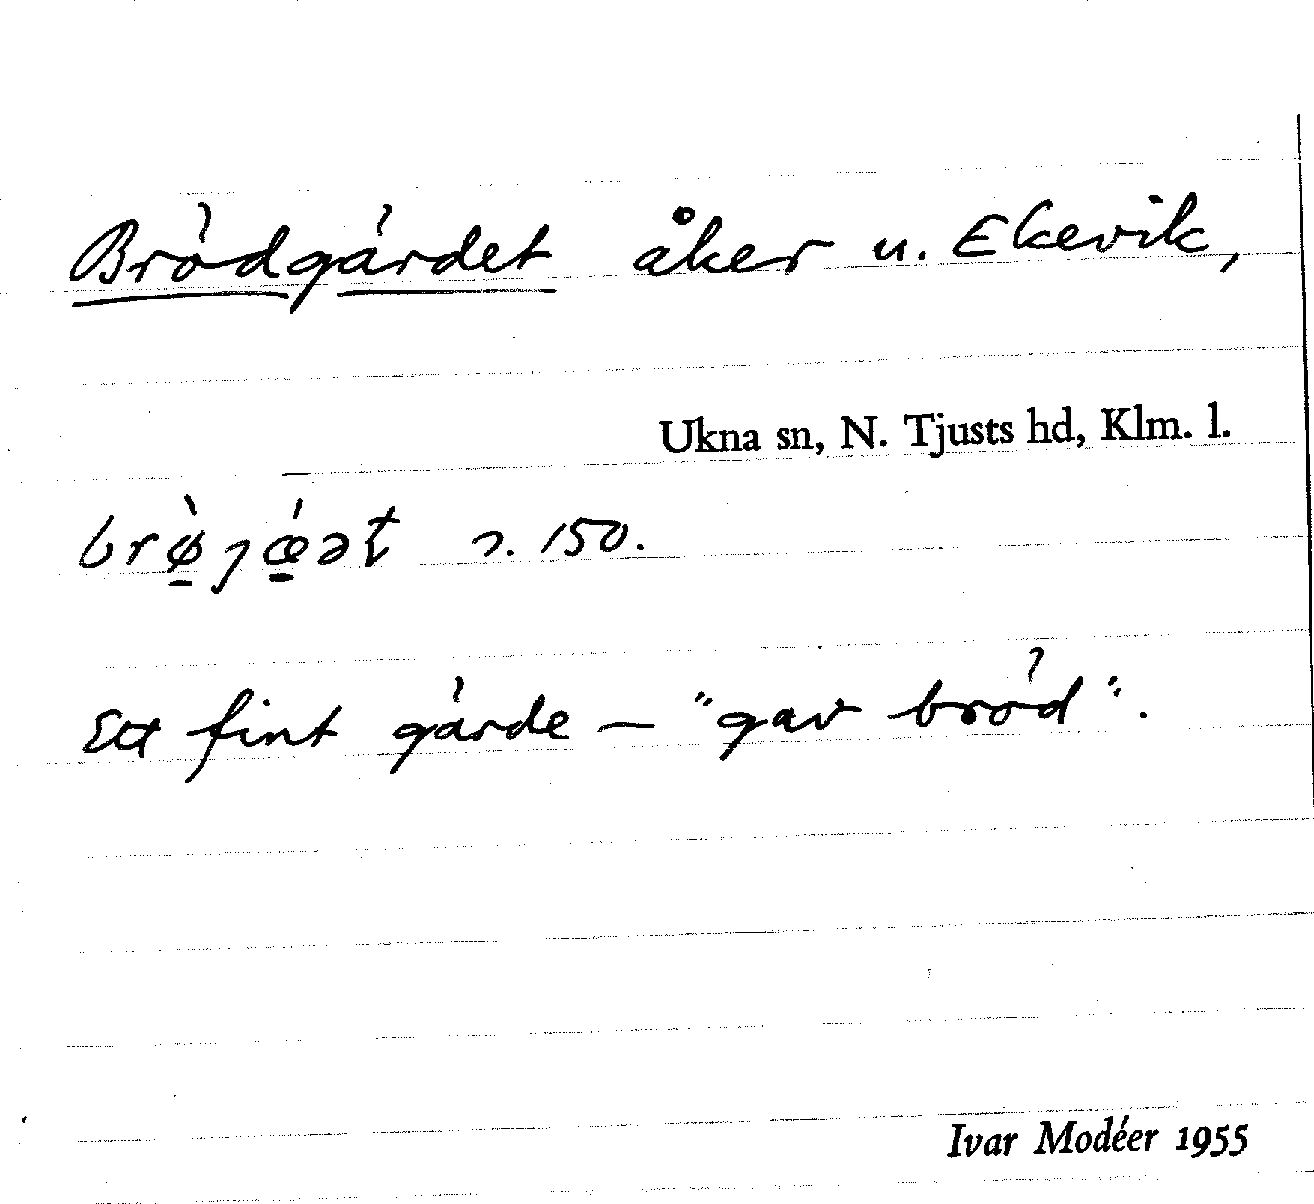 Brödgärdet åker u. Ekevik,
Ukna sn, N. Tjusts hd, Klm. l.
brø̱̀ȷœ̱́ət n. 150.
Ett fint gärde — "gav bröd".
Ivar Modéer 1955